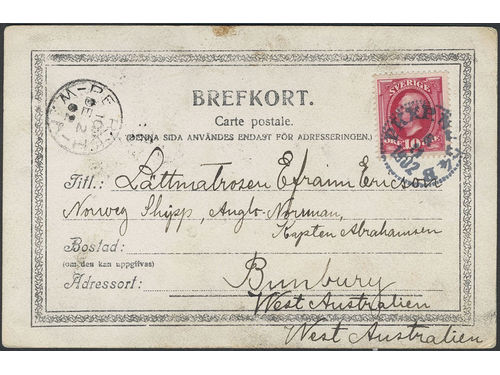 BREFKORT.
Carte postale.
(DENNA SIDA ANVÄNDES ENDAST FÖR ADRESSERINGEN.)
SVERIGE
ÖRE 10 ÖRE
1902
Titl.: Lättmatrosen Efraim Ericson
Norweg Shipp, Anglo-Norman,
Kapten Abrahamsen
Bostad:
(om den kan uppgifvas)
Adressort: Bunbury
West Australien
West Australien